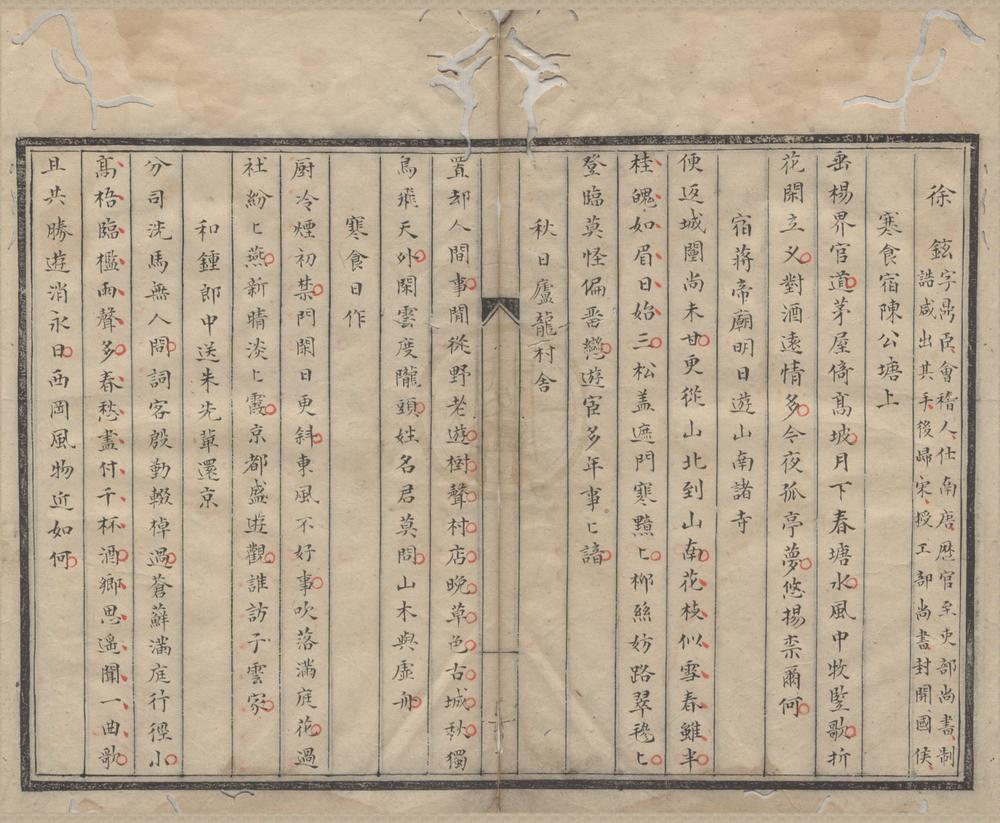 徐鉉字鼎臣會稽人仕南唐歷官至吏部尚書制
誥咸出其手後歸宋授工部尚書封開國侯
寒食宿陳公塘上
垂楊界官道茅屋倚高坡月下春塘水風中牧豎歌折
花閑立久對酒遠情多今夜孤亭夢悠揚柰爾何
宿蔣帝廟明日遊山南諸寺
便返城闉尚未甘更從山北到山南花枝似雪春雖半
桂魄如眉日始三松盖遮門寒黯匕柳絲妨路翠毿匕
登臨莫怪偏畱戀遊宦多年事匕諳
秋日廬龍村舍
置却人間事閒從野老遊樹聲村店晚草色古城秋獨
鳥飛天外閑雲度隴頭姓名君莫問山木與虛舟
寒食日作
厨冷煙初禁門閑日更斜東風不好事吹落滿庭花過
社紛匕燕新晴淡匕霞京都盛遊觀誰訪子雲家
和鍾郎中送朱先輩還京
分司洗馬無人問詞客殷勤輟棹過蒼蘚滿庭行徑小
髙梧臨檻雨聲多春愁盡付千杯酒鄉思遥聞一曲歌
且共勝遊消永日西岡風物近如何